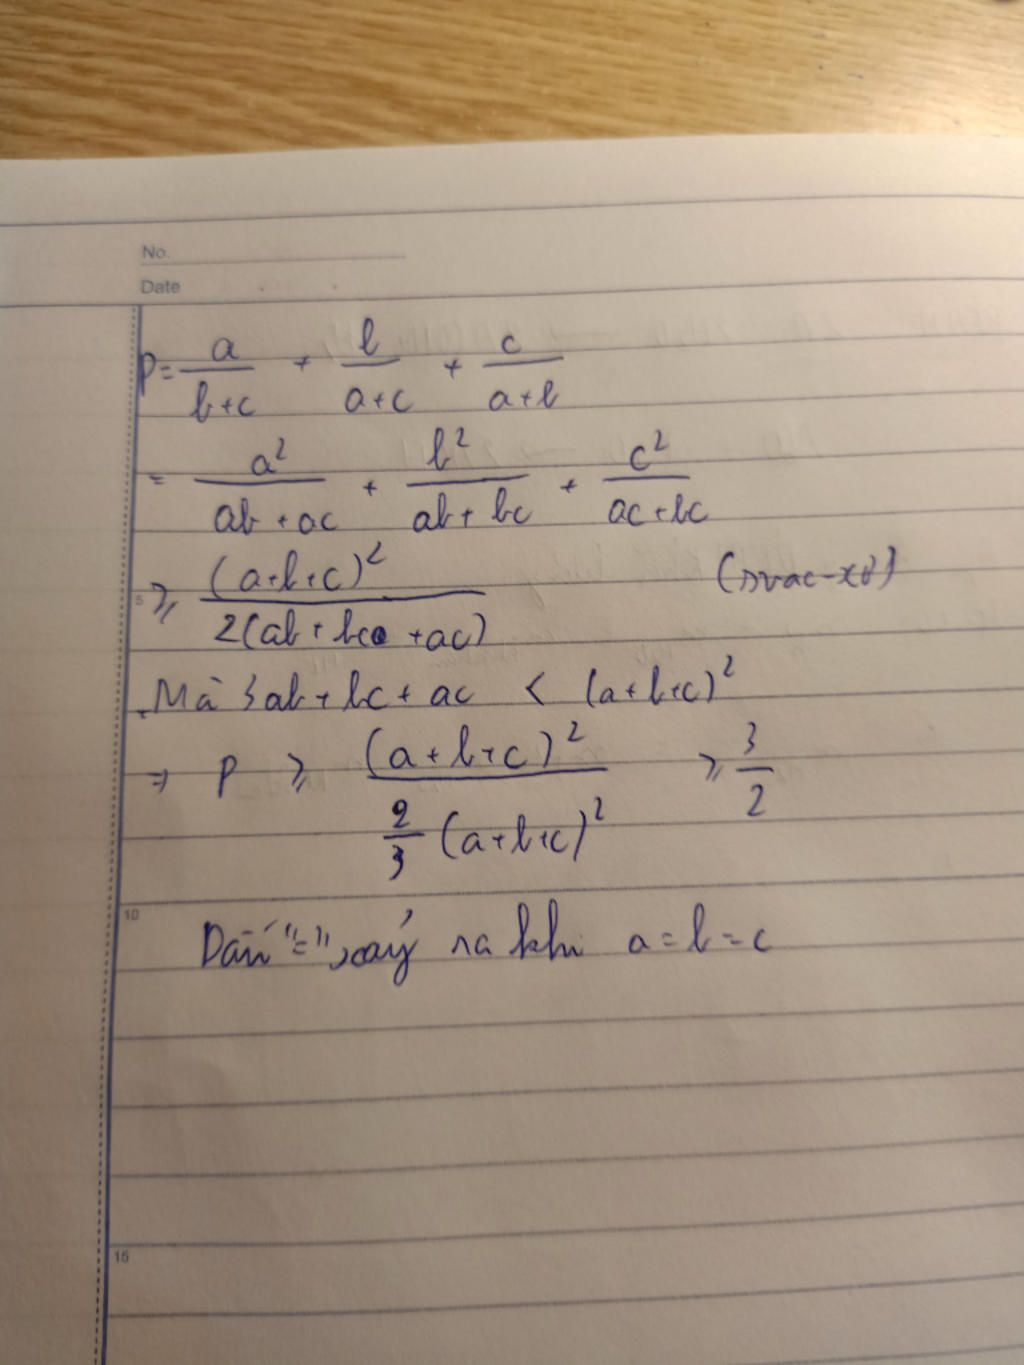 No.
Date
P = a/(b+c) + b/(a+c) + c/(a+b)
= a²/(ab+ac) + b²/(ab+bc) + c²/(ac+bc)
5
≥ (a+b+c)²/2(ab+bc+ac) (svac-xơ)
Mà 3ab+bc+ac < (a+b+c)²
⇒ P ≥ (a+b+c)²/(2/3 (a+b+c)²) ≥ 3/2
10
Dấu "=" xảy ra khi a=b=c
15